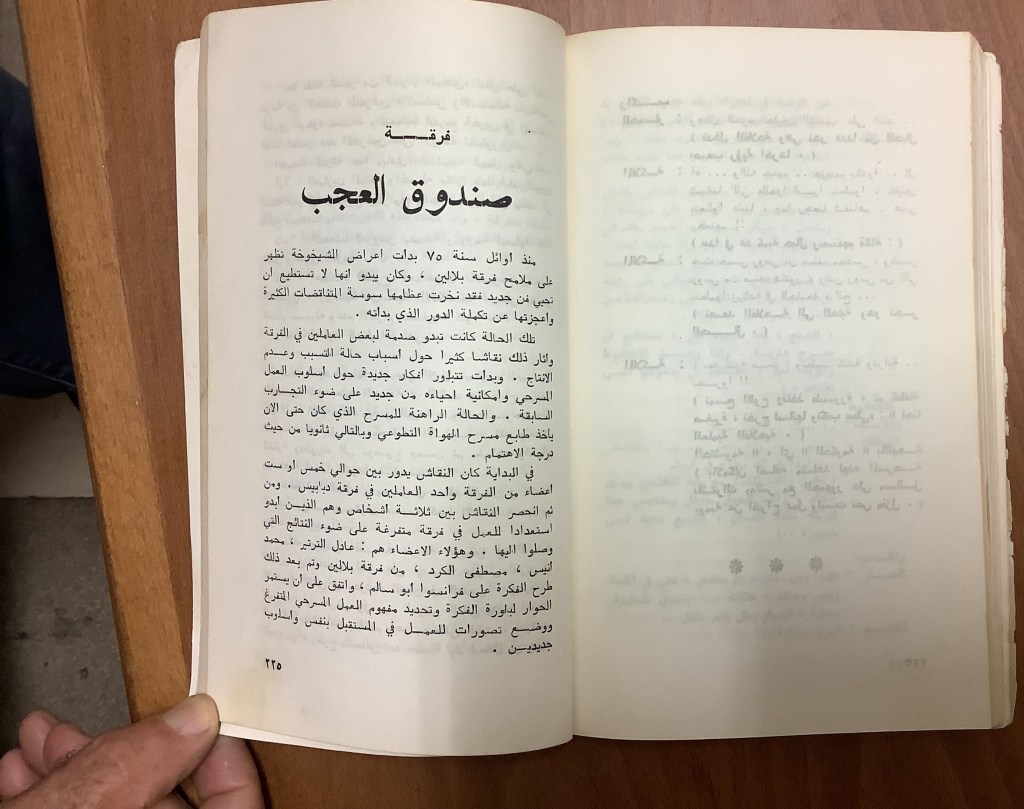 فرقـــــة
صندوق العجب
منذ أوائل سنة ٧٥ بدأت اعراض الشيخوخة تظهر
على ملامح فرقة بلالين ، وكان يبدو انها لا تستطيع ان
تحيي من جديد فقد نخرت عظامها سوسة المتناقضات الكثيرة
واعجزتها عن تكملة الدور الذي بدأته .
تلك الحالة كانت تبدو صدمة لبعض العاملين في الفرقة
واثار ذلك نقاشا كثيرا حول أسباب حالة التسبب وعـدم
الانتاج . وبدأت تتبلور أفكار جديدة حول اسلوب العمل
المسرحي وامكانية احياءه من جديد على ضوء التجارب
السابقة . والحالة الراهنة للمسرح الذي كان حتى الان
يأخذ طابع مسرح الهواة التطوعي وبالتالي ثانويا من حيث
درجة الاهتمام .
في البداية كان النقاش يدور بين حوالي خمس او ست
اعضاء من الفرقة واحد العاملين في فرقة دبابيس . ومن
ثم انحصر النقاش بين ثلاثـة أشخاص وهم الذيـن ابدو
استعدادا للعمل في فرقة متفرغة على ضوء النتائج التي
وصلوا اليها . وهؤلاء الاعضاء هم : عادل الترتير ، محمد
انيس ، مصطفى الكرد ، من فرقة بلالين وتم بعد ذلك
طرح الفكرة على فرانسوا ابو سالم ، واتفق على ان يستمر
الحوار لبلورة الفكرة وتحديد مفهوم العمل المسرحي المتفرغ
ووضـع تصورات للعمـل في المستقبل بنفس واسلوب
جديديـن .
٢٢٥